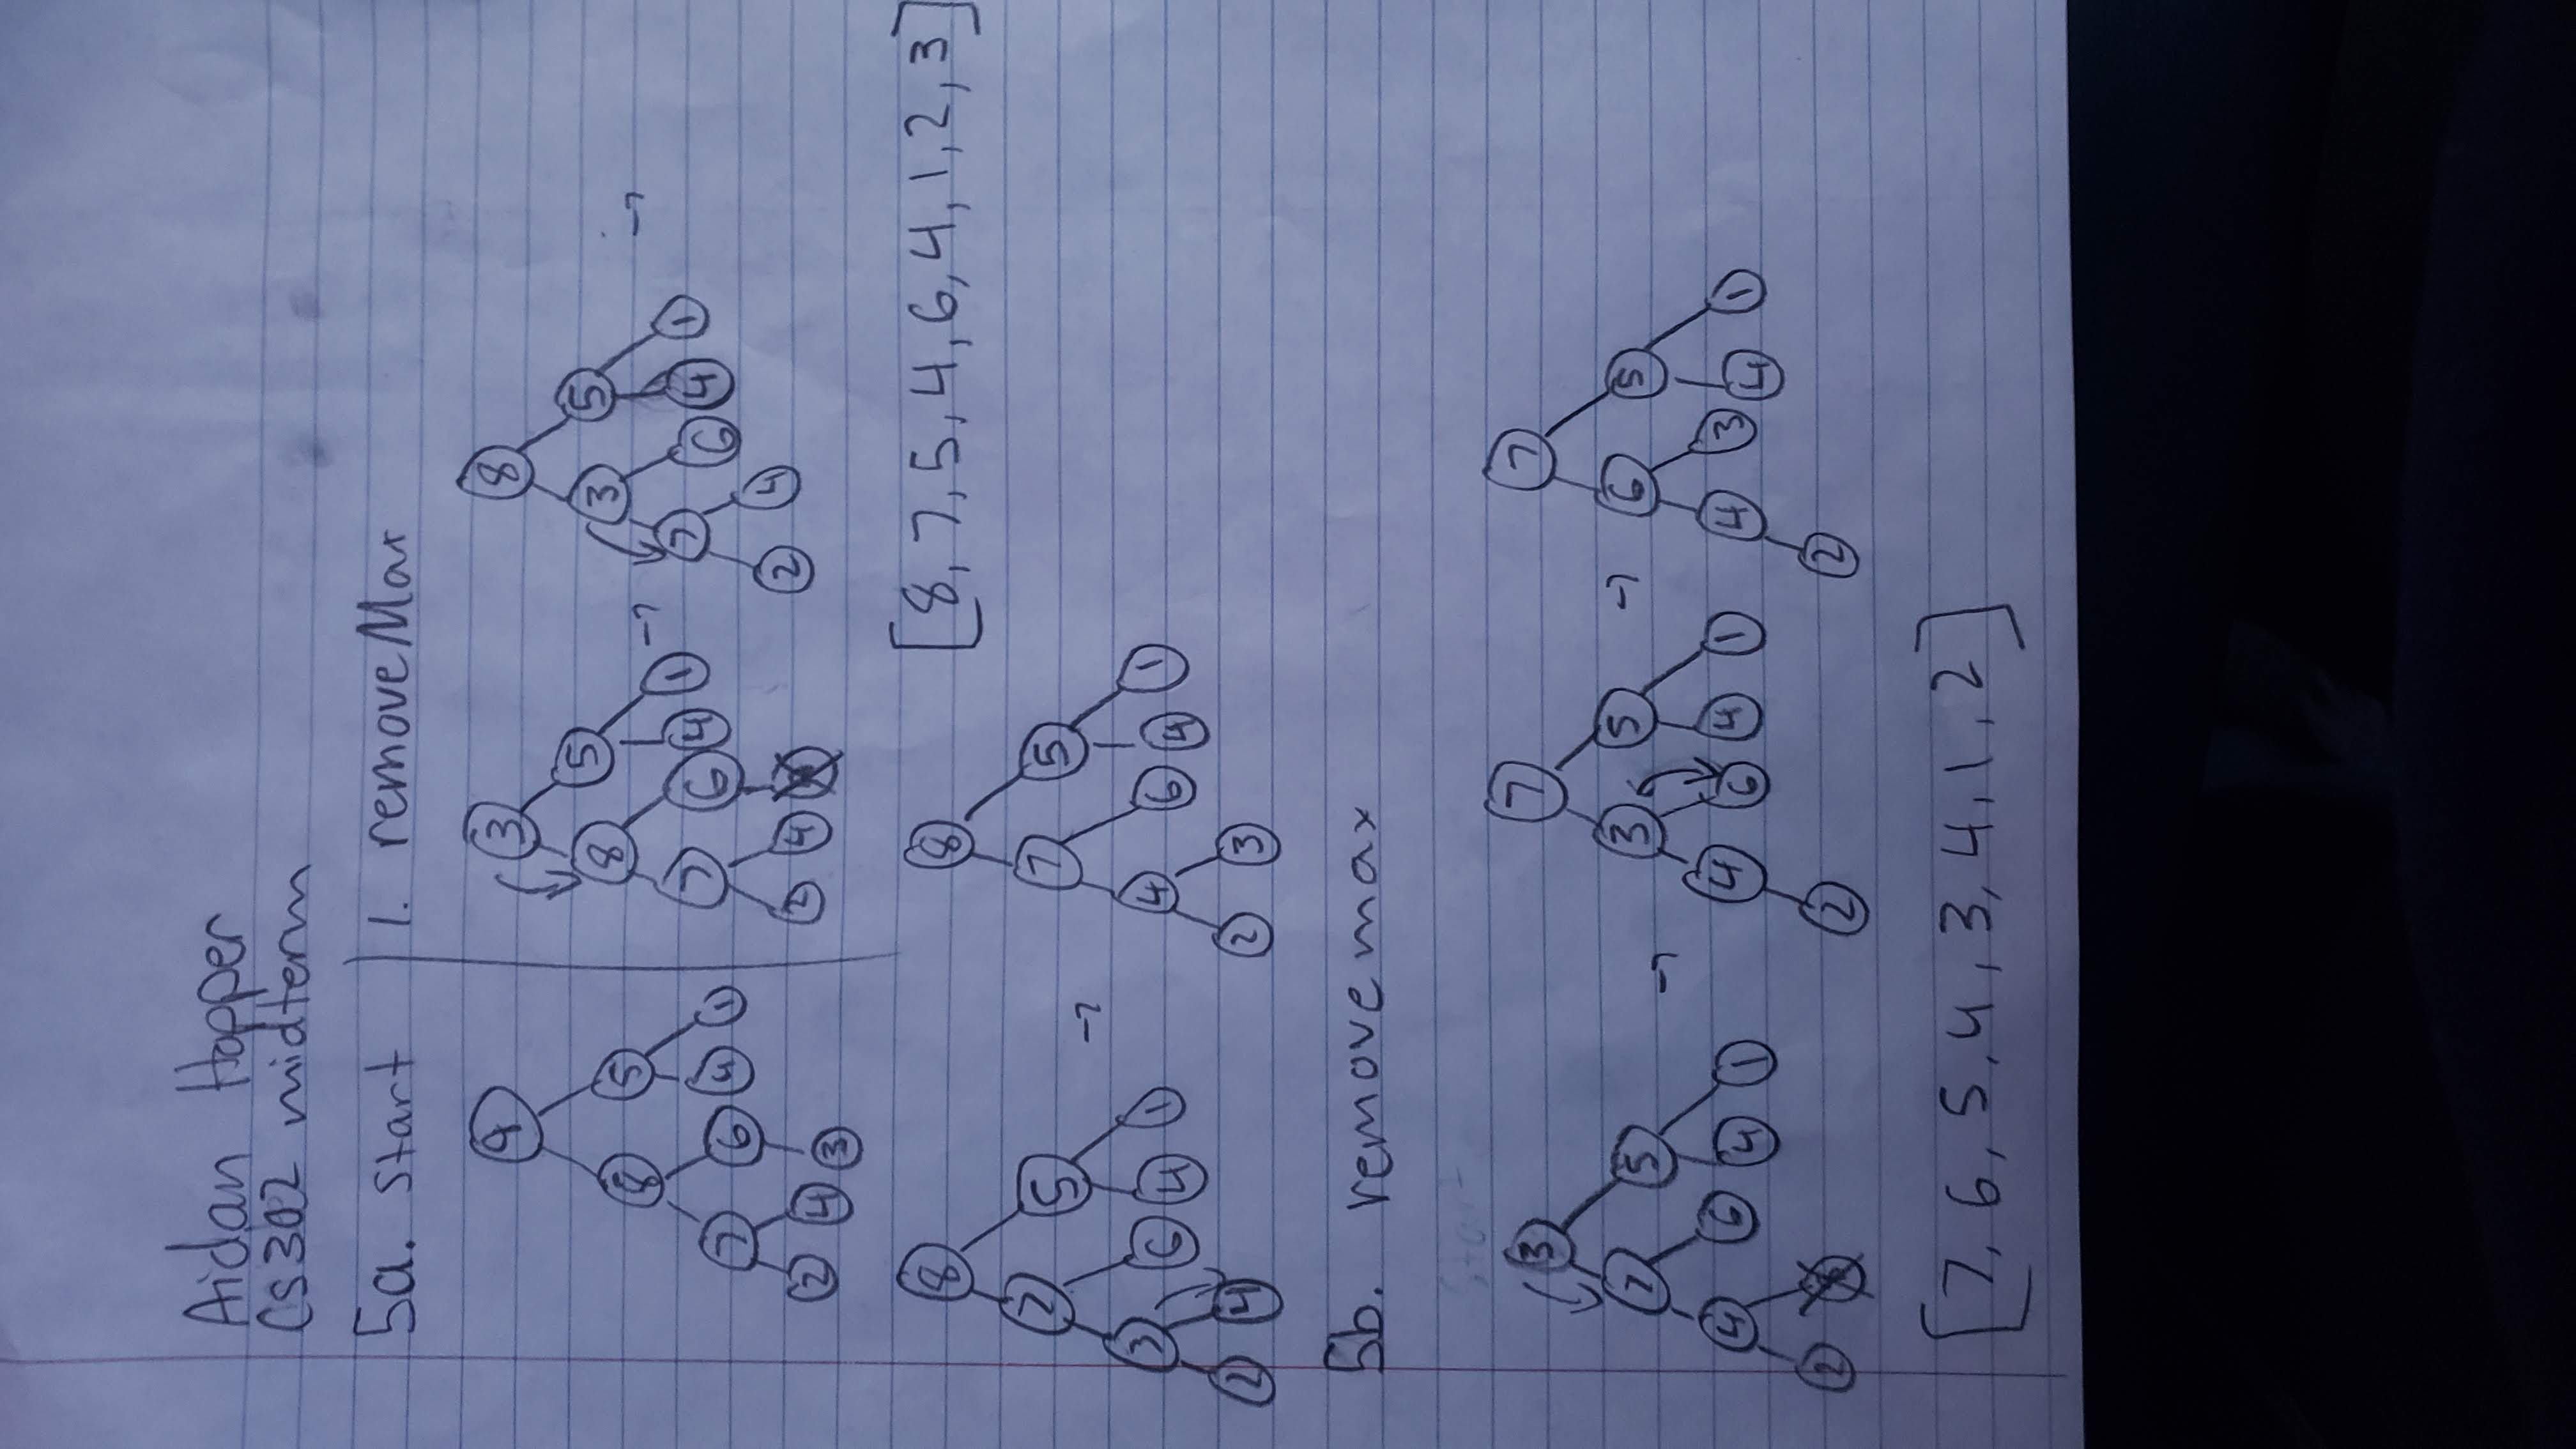 Aidan Hopper
CS302 midterm
5a. Start
1. removeMax
9
8 5
7 6 4 1
2 4 3
3
8 5
7 6 4 1
2 4
8
3 5
7 6 4 1
2 4
8
7 5
3 6 4 1
2 4
8
7 5
4 6 4 1
2 3
[8, 7, 5, 4, 6, 4, 1, 2, 3]
5b. remove max
Start
3
7 5
4 6 4 1
2
7
3 5
4 6 4 1
2
7
6 5
4 3 4 1
2
[7, 6, 5, 4, 3, 4, 1, 2]